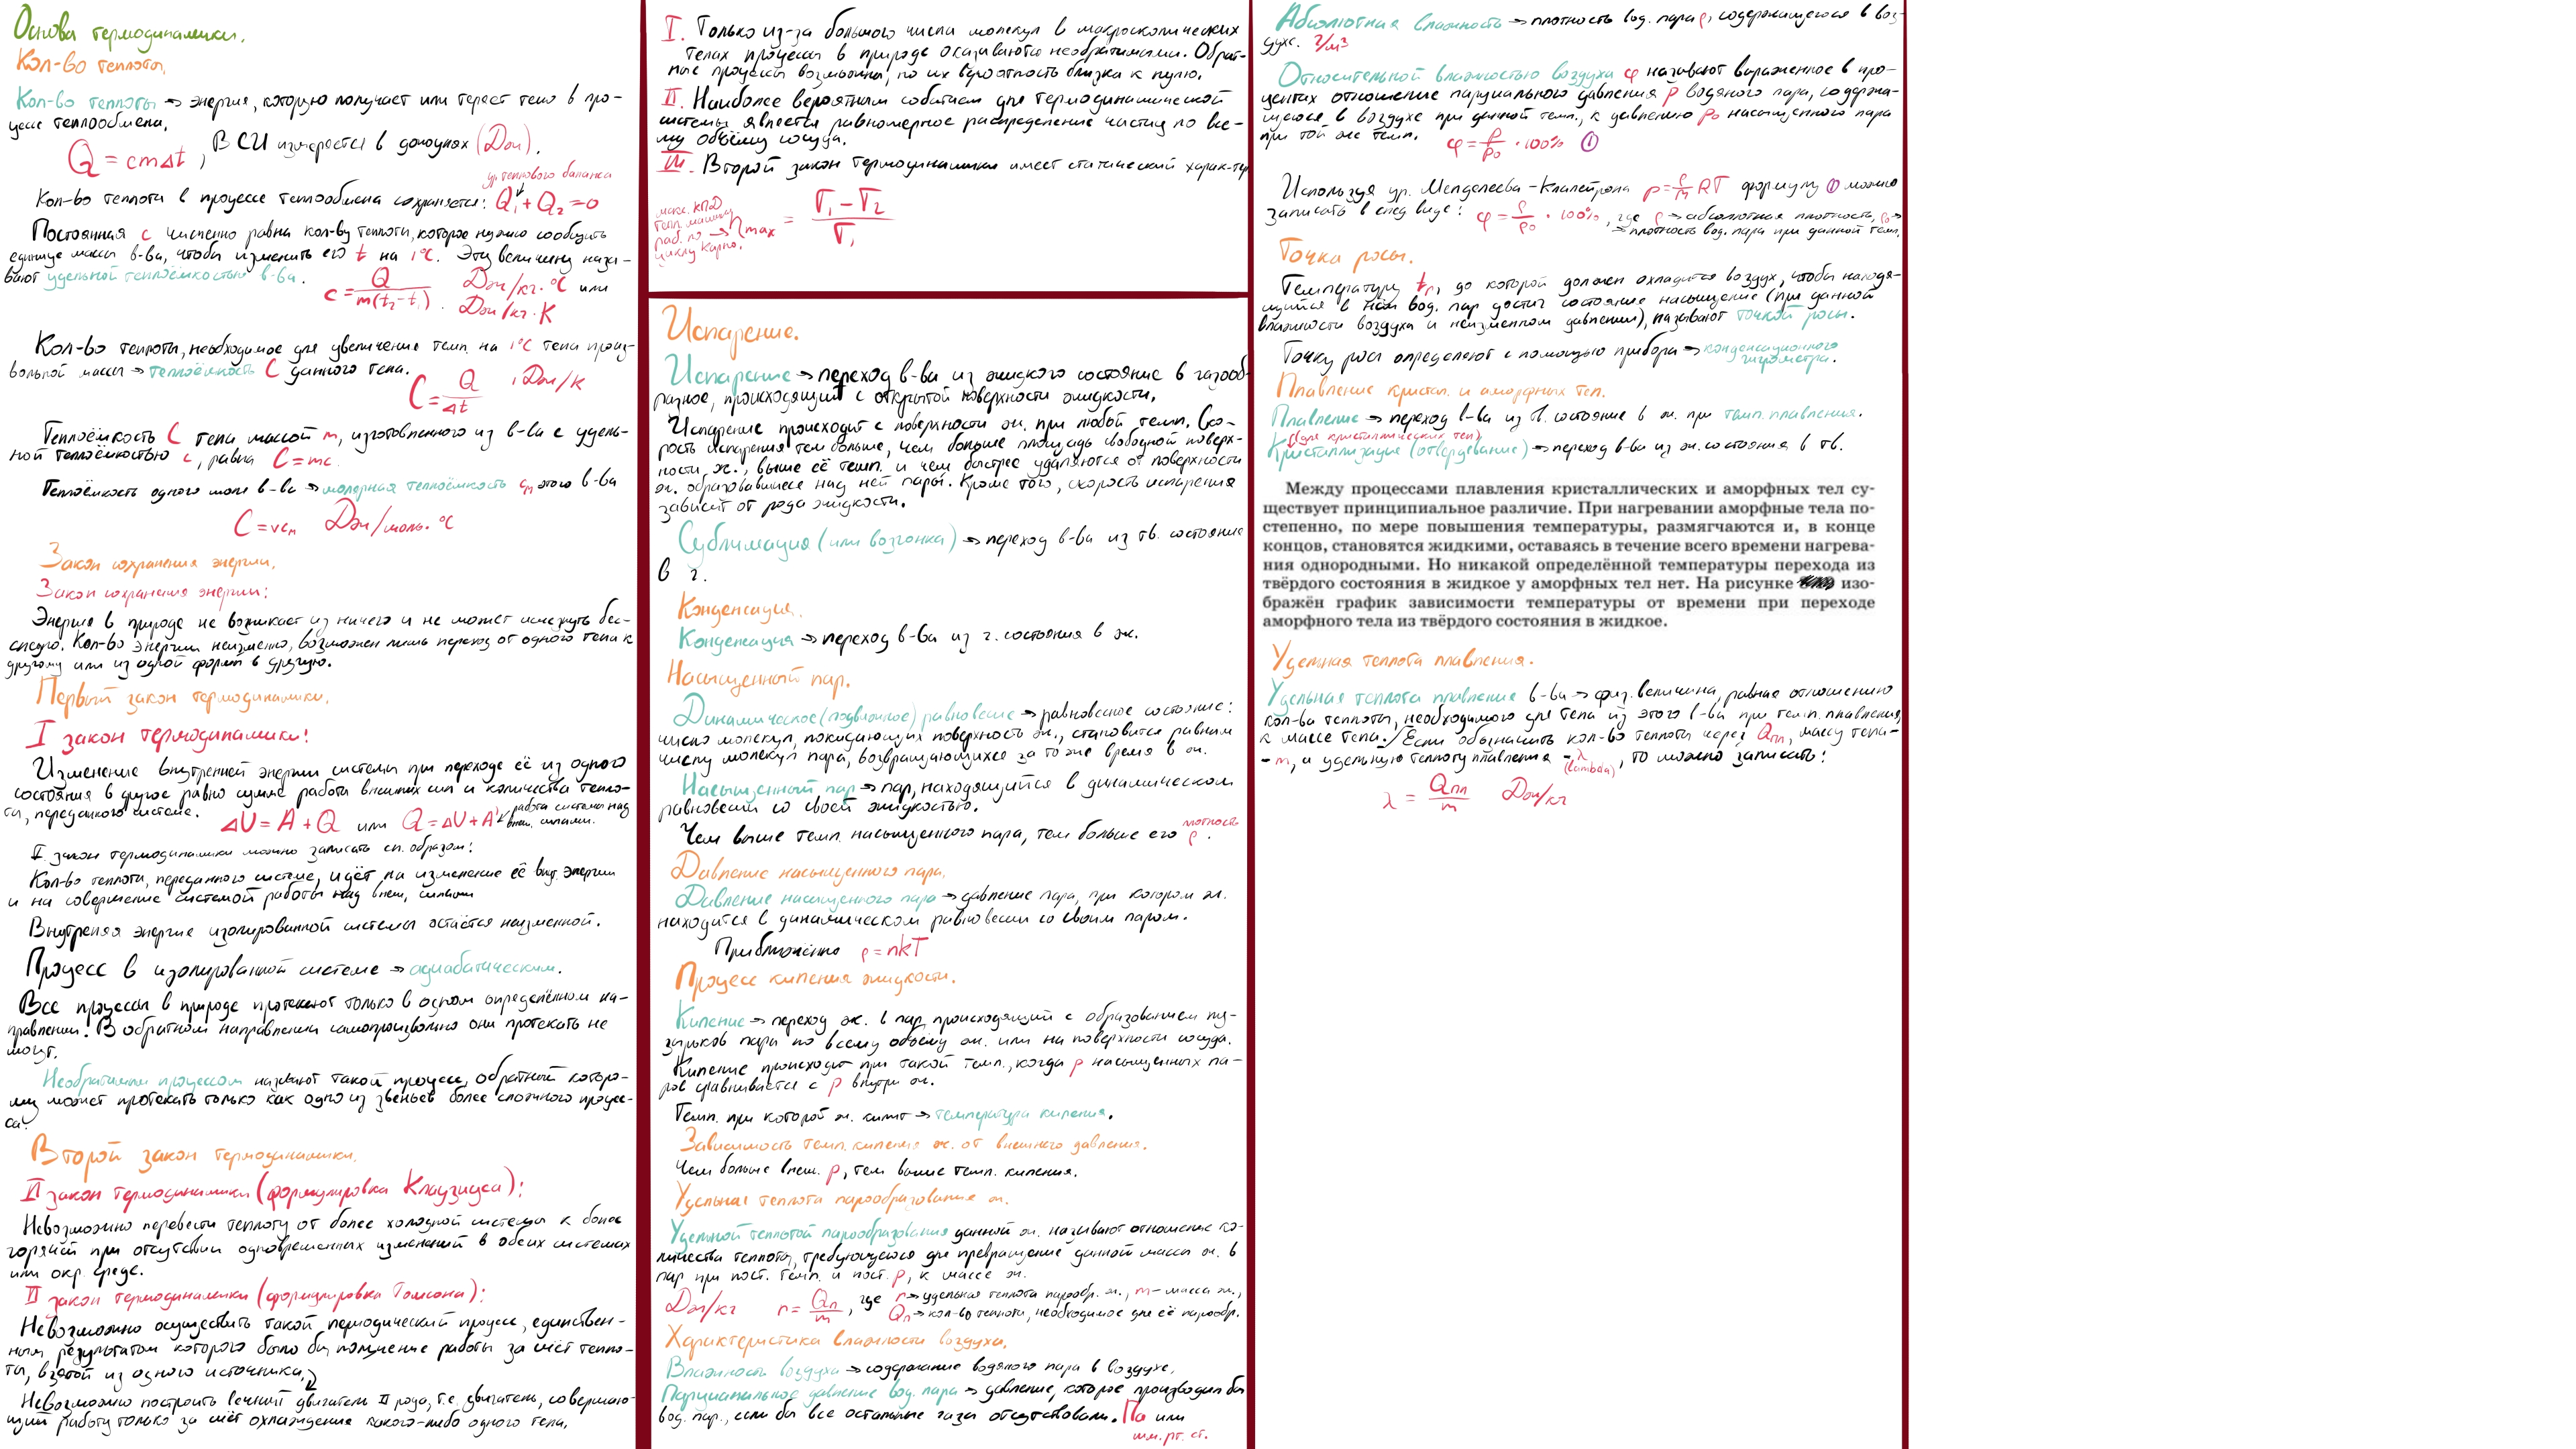 Основа термодинамики.
Кол-во теплоты.
Кол-во теплоты → энергия, которую получает или теряет тело в про-
цессе теплообмена.
Q = cmΔt , В СИ измеряется в джоулях (Дж).
ур. теплового баланса
Кол-во теплоты в процессе теплообмена сохраняется: Q₁ + Q₂ = 0
Постоянная c численно равна кол-ву теплоты, которое нужно сообщить
единице массы в-ва, чтобы изменить его t на 1°C. Эту величину назы-
вают удельной теплоёмкостью в-ва.
c = Q/m(t₂-t₁) . Дж/кг·°C или
Дж/кг·K
Кол-во теплоты, необходимое для увеличение темп. на 1°C тела произ-
вольной массы → теплоёмкость C данного тела.
C = Q/Δt , Дж/K
Теплоёмкость C тела массой m, изготовленного из в-ва с удель-
ной теплоёмкостью c, равна C = mc.
Теплоёмкость одного моля в-ва → молярная теплоёмкость cₘ этого в-ва
C = νcₘ Дж/моль·°C
Закон сохранения энергии.
Закон сохранения энергии:
Энергия в природе не возникает из ничего и не может исчезнуть бес-
следно. Кол-во энергии неизменно, возможен лишь переход от одного тела к
другому или из одной формы в другую.
Первый закон термодинамики.
I закон термодинамики:
Изменение внутренней энергии системы при переходе её из одного
состояния в другое равно сумме работы внешних сил и количества тепло-
ты, переданного системе. ΔU = A + Q или Q = ΔU + A' работа системы над внеш. силами.
I закон термодинамики можно записать сл. образом:
Кол-во теплоты, переданного системе, идёт на изменение её внут. энергии
и на совершение системой работы над внеш. силами
Внутреняя энергия изолированной системы остаётся неизменной.
Процесс в изолированной системе → адиабатическим.
Все процессы в природе протекают только в одном определённом на-
правлении! В обратном направлении самопроизвольно они протекать не
могут.
Необратимым процессом называют такой процесс, обратный которо-
му может протекать только как одно из звеньев более сложного процес-
са!
Второй закон термодинамики.
II закон термодинамики (формулировка Клаузиуса):
Невозможно перевести теплоту от более холодной системы к более
горячей при отсутствии одновременных изменений в обеих системах
или окр. среде.
II закон термодинамики (формулировка Томсона):
Невозможно осуществить такой периодический процесс, единствен-
ным результатом которого было бы получение работы за счёт тепло-
ты, взятой из одного источника.
Невозможно построить вечный двигатель II рода, т.е. двигатель, совершаю-
щий работу только за счёт охлаждения какого-либо одного тела.
I. Только из-за большого числа молекул в макроскопических
телах процессы в природе оказываются необратимыми. Обрат-
ные процессы возможны, но их вероятность близка к нулю.
II. Наиболее вероятным событием для термодинамической
системы является равномерное распределение частиц по все-
му объёму сосуда.
III. Второй закон термодинамики имеет статический харак-тер
макс. КПД
тепл. машины
раб. по → η max = T₁ - T₂ / T₁
циклу Карно.
Испарение.
Испарение → переход в-ва из жидкого состояние в газооб-
разное, происходящий с открытой поверхности жидкости.
Испарение происходит с поверхности ж. при любой темп. Ско-
рость испарения тем больше, чем больше площадь свободной поверх-
ности ж., выше её темп. и чем быстрее удаляются от поверхности
ж. образовавшиеся над ней пары. Кроме того, скорость испарения
зависит от рода жидкости.
Сублимация (или возгонка) → переход в-ва из тв. состояние
в г.
Конденсация.
Конденсация → переход в-ва из г. состояния в ж.
Насыщенный пар.
Динамическое (подвижное) равновесие → равновесное состояние:
число молекул, покидающих поверхность ж., становится равным
числу молекул пара, возвращающихся за то же время в ж.
Насыщенный пар → пар, находящийтся в динамическом
равновесии со своей жидкостью.
Чем выше темп. насыщенного пара, тем больше его ρ. плотность
Давление насыщенного пара.
Давление насыщенного пара → давление пара, при котором ж.
находится в динамическом равновесии со своим паром.
Приближённо p = nkT
Процесс кипения жидкости.
Кипение → переход ж. в пар, происходящий с образованием пу-
зырьков пара по всему объёму ж. или на поверхности сосуда.
Кипение происходит при такой темп., когда p насыщенных па-
ров сравнивается с p внутри ж.
Темп. при которой ж. кипит → температура кипения.
Зависимость темп. кипения ж. от внешнего давления.
Чем больше внеш. p, тем выше темп. кипения.
Удельная теплота парообразования ж.
Удельной теплотой парообразования данной ж. называют отношение ко-
личества теплоты, требующегося для превращение данной массы ж. в
пар при пост. темп. и пост. p, к массе ж.
Дж/кг r = Qₙ/m , где r → удельная теплота парообр. ж., m - масса ж.,
Qₙ → кол-во теплоты, необходимое для её парообр.
Характеристика влажности воздуха.
Влажность воздуха → содержание водяного пара в воздухе.
Парциальное давление вод. пара → давление, которое производил бы
вод. пар., если бы все остальные газы отсутствовали. Па или
мм. рт. ст.
Абсолютная влажность → плотность вод. пара ρ, содержащегося в воз-
духе. г/м³
Относительной влажностью воздуха φ называют выраженное в про-
центах отношение парциального давления p водяного пара, содержа-
щегося в воздухе при данной темп., к давлению p₀ насыщенного пара
при той же темп. φ = p/p₀ · 100% ①
Используя ур. Менделеева-Клапейрона p = ρ/M RT формулу ① можно
записать в след виде: φ = ρ/ρ₀ · 100%, где ρ → абсолютная плотность, ρ₀ →
→ плотность вод. пара при данной темп.
Точка росы.
Температуру tₚ, до которой должен охладится воздух, чтобы находя-
щийся в нём вод. пар достиг состояние насыщение (при данной
влажности воздуха и неизменном давлении), называют точкой росы.
Точку росы определяют с помощью прибора → конденсационного
гигрометра.
Плавление кристал. и аморфных тел.
Плавление → переход в-ва из тв. состояние в ж. при темп. плавления.
(для кристаллических тел)
Кристаллизация (отвердевание) → переход в-ва из ж. состояния в тв.
Между процессами плавления кристаллических и аморфных тел су-
ществует принципиальное различие. При нагревании аморфные тела по-
степенно, по мере повышения температуры, размягчаются и, в конце
концов, становятся жидкими, оставаясь в течение всего времени нагрева-
ния однородными. Но никакой определённой температуры перехода из
твёрдого состояния в жидкое у аморфных тел нет. На рисунке изо-
бражён график зависимости температуры от времени при переходе
аморфного тела из твёрдого состояния в жидкое.
Удельная теплота плавления.
Удельная теплота плавления в-ва → физ. величина, равная отношению
кол-ва теплоты, необходимого для тела из этого в-ва при темп. плавления,
к массе тела. / Если обозначить кол-во теплоты через Qпл, массу тела -
- m, и удельную теплоту плавления - λ (lambda), то можно записать:
λ = Qпл/m Дж/кг